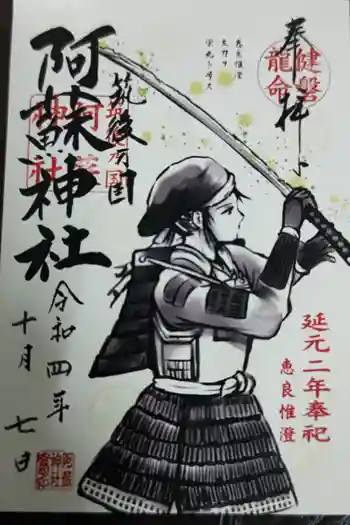 奉拝
健磐
龍命
恵良惟澄
筑後乃国
阿蘇神社
令和四年
十月七日
延元二年奉祀
恵良惟澄